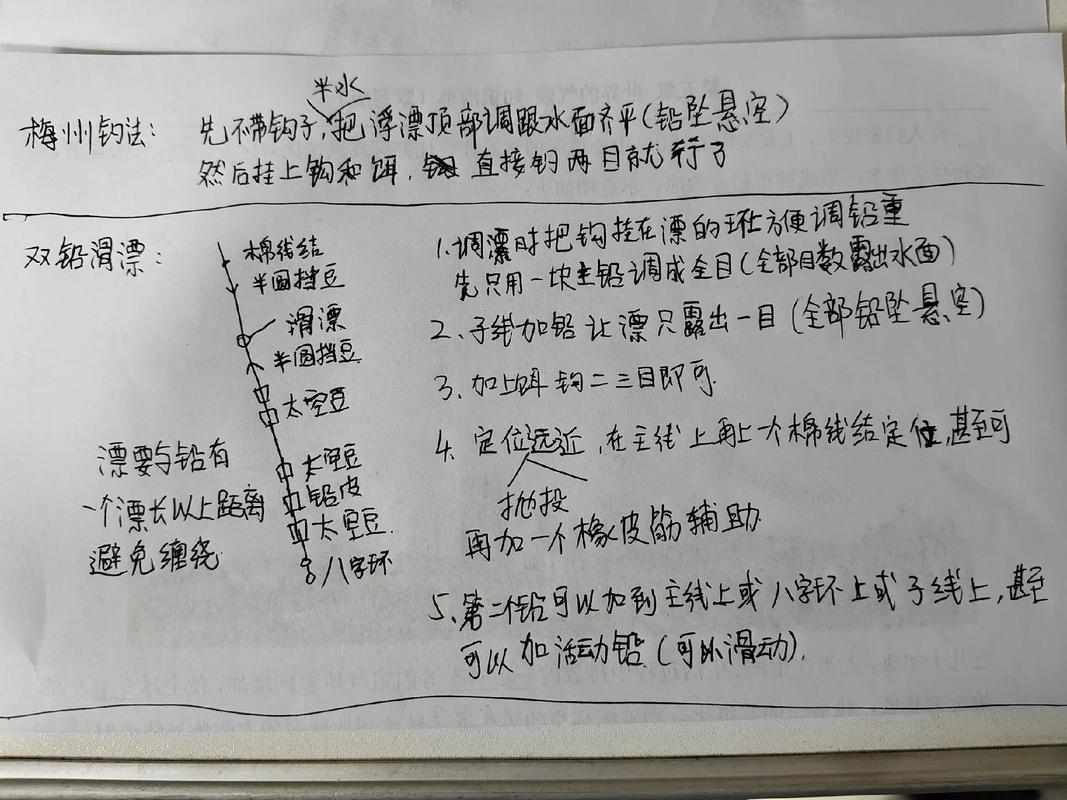 半水
梅州钓法： 先不带钩子，把浮漂顶部调跟水面齐平（铅坠悬空）
然后挂上钩和饵，直接钓两目就行了
双铅滑漂：
棉线结
半圆挡豆
滑漂
半圆挡豆
太空豆
太空豆
铅皮
太空豆
八字环
漂要与铅有
一个漂长以上距离
避免缠绕
1. 调漂时把钩挂在漂的环上方便调铅重
先只用一块主铅调成全目（全部目数露出水面）
2、子线加铅让漂只露出一目（全部铅坠悬空）
3、加上饵钓二三目即可
4、定位远近，在主线上再上一个棉线结定位，甚至可
抛投
再加一个橡皮筋辅助
5、第二个铅可以加到主线上或八字环上或子线上，甚至
可以加活动铅（可以滑动）.